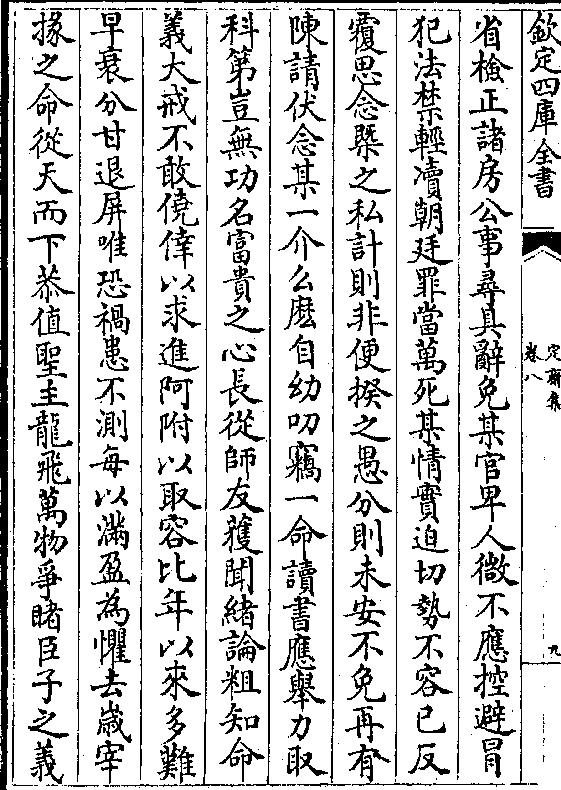 欽定四庫全書
定齋集
卷八
九
省檢正諸房公事尋具辭免某官卑人微不應控避冒
犯法禁輕瀆朝廷罪當萬死某情實迫切勢不容已反
覆思念槩之私計則非便揆之愚分則未安不免再有
陳請伏念某一介么麽自幼叨竊一命讀書應舉力取
科第豈無功名富貴之心長從師友獲聞緒論粗知命
義大戒不敢僥倖以求進阿附以取容比年以來多難
早衰分甘退屏唯恐禍患不測每以滿盈為懼去嵗宰
掾之命從天而下恭值聖主龍飛萬物爭睹臣子之義